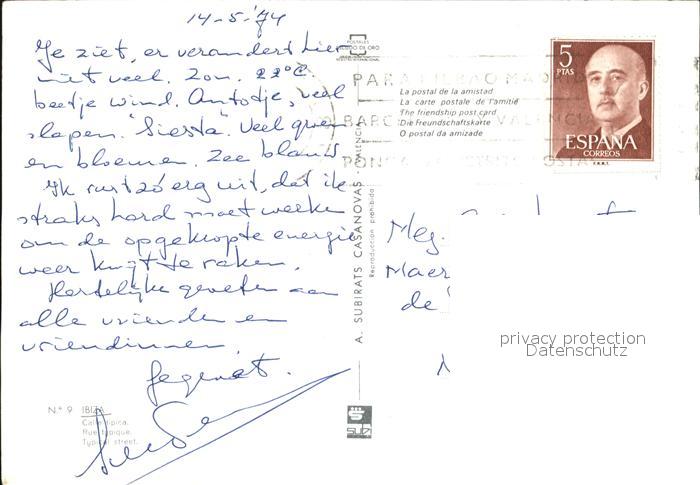 14-5-'74
Je ziet, er verandert hier
niet veel. Zon. 22°C
beetje wind. Autotje, veel
slapen. "Siesta". Veel groen
en bloemen. Zee blauw.
Ik rust zó erg uit, dat ik
straks hard moet werke
om de opgekropte energie
weer kwijt te raken.
Hartelijke groeten aan
alle vrienden en
vriendinnen
gegroet.
N.º 9 IBIZA
Calle típica.
Rue typique.
Typical street.
POSTALES
ESCUDO DE ORO
A. SUBIRATS CASANOVAS - VALENCIA
Reproducción prohibida
SUBI
La postal de la amistad
La carte postale de l'amitié
The friendship post card
Die Freundschaftskarte
O postal da amizade
PARA BILBAO MADRID
BARCELONA VALENCIA
PONGA DISTRITO POSTAL
5
PTAS
ESPAÑA
CORREOS
F.N.M.T.
Mej.
Maer
de
privacy protection
Datenschutz